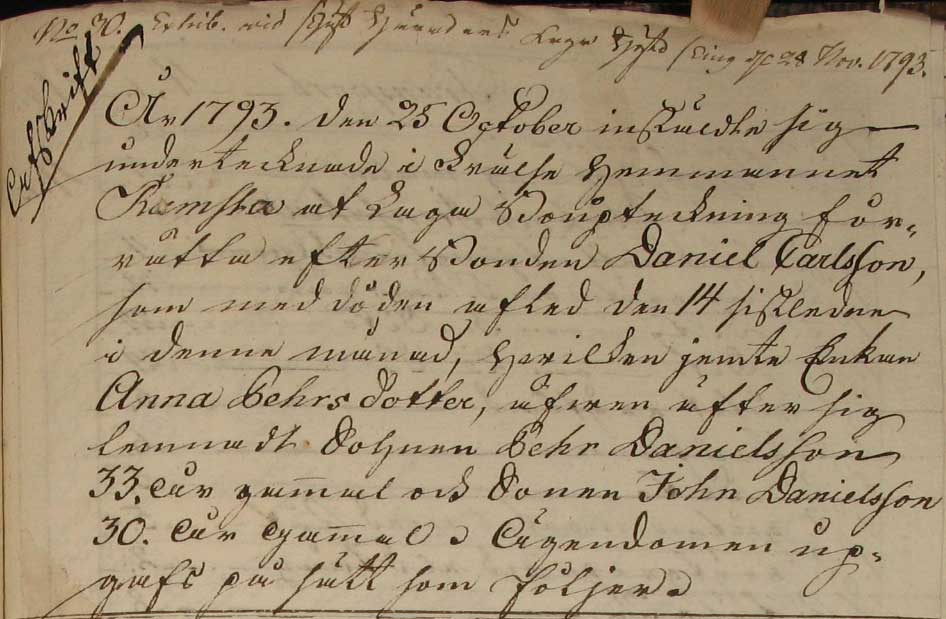 No 30. Exhib. vid Häradets Laga Höst Ting d. 28 Nov. 1793.
Afskrift
År 1793. den 25 October instälde sig
undertecknade i Skralse Hemmannet
Ramsta at Laga Bouptekning för-
rätta efter Bonden Daniel Carlsson,
som med döden afled den 14 sistledne
i denne månad, hvilken jemte Enkan
Anna Pehrs Dotter, äfven efter sig
lemnadt Sohnen Pehr Danielsson
33. år gammal och Sonen John Danielsson
30. år gammal. Ägendomen up-
gafs på sätt som följer.